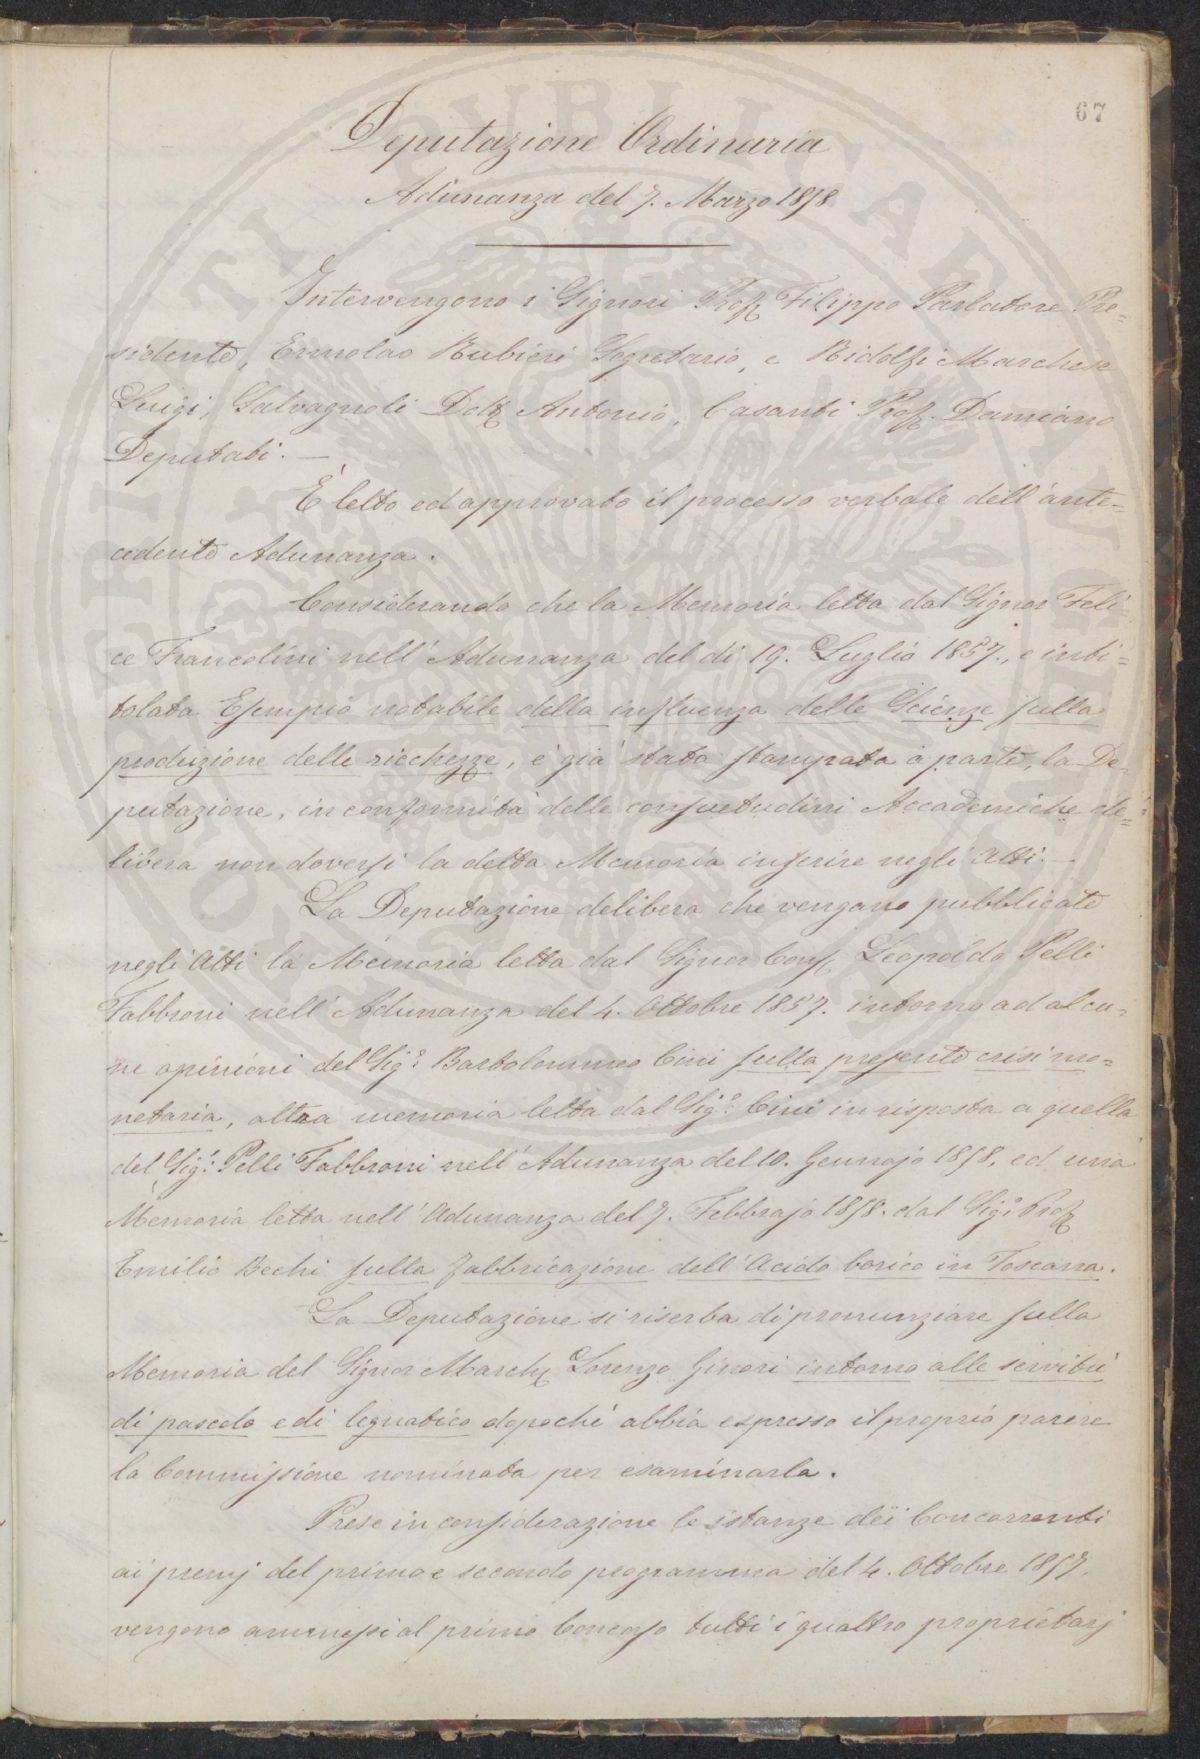 67
Deputazione Ordinaria
Adunanza del 7. Marzo 1858
Intervengono i Signori Prof. Filippo Parlatore Pre=
sidente, Ermolao Rubieri Segretario, e Ridolfi Marchese
Luigi, Salvagnoli Dott. Antonio, Casanti Prof. Damiano
Deputati. —
È letto ed approvato il processo verbale dell'ante=
cedente Adunanza.
Considerando che la Memoria letta dal Signor Feli
ce Francolini nell'Adunanza del dì 19. Luglio 1857., e inti=
tolata Esempio notabile della influenza delle Scienze sulla
produzione delle ricchezze, è già stata stampata a parte, la De
putazione, in conformità delle consuetudini Accademiche de=
libera non doversi la detta Memoria inserire negli Atti. —
La Deputazione delibera che vengano pubblicate
negli Atti la Memoria letta dal Signor Cons. Leopoldo Pelli
Fabbroni nell'Adunanza del 4. Ottobre 1857. intorno ad alcu=
ne opinioni del Sig.r Bartolommeo Cini sulla presente crisi mo=
netaria, altra memoria letta dal Sig.r Cini in risposta a quella
del Sig.r Pelli Fabbroni nell'Adunanza del 10. Gennajo 1858, ed una
Memoria letta nell'Adunanza del 7. Febbrajo 1858. dal Sig.r Prof.
Emilio Bechi sulla fabbricazione dell'Acido borico in Toscana.
La Deputazione si riserba di pronunziare sulla
Memoria del Signor March. Lorenzo Ginori intorno alle servitù
di pascolo e di legnatico dopochè abbia espresso il proprio parere
la Commissione nominata per esaminarla.
Prese in considerazione le istanze dei Concorrenti
ai premj del primo e secondo programma del 4. Ottobre 1857,
vengono ammessi al primo Concorso tutti i quattro proprietarj